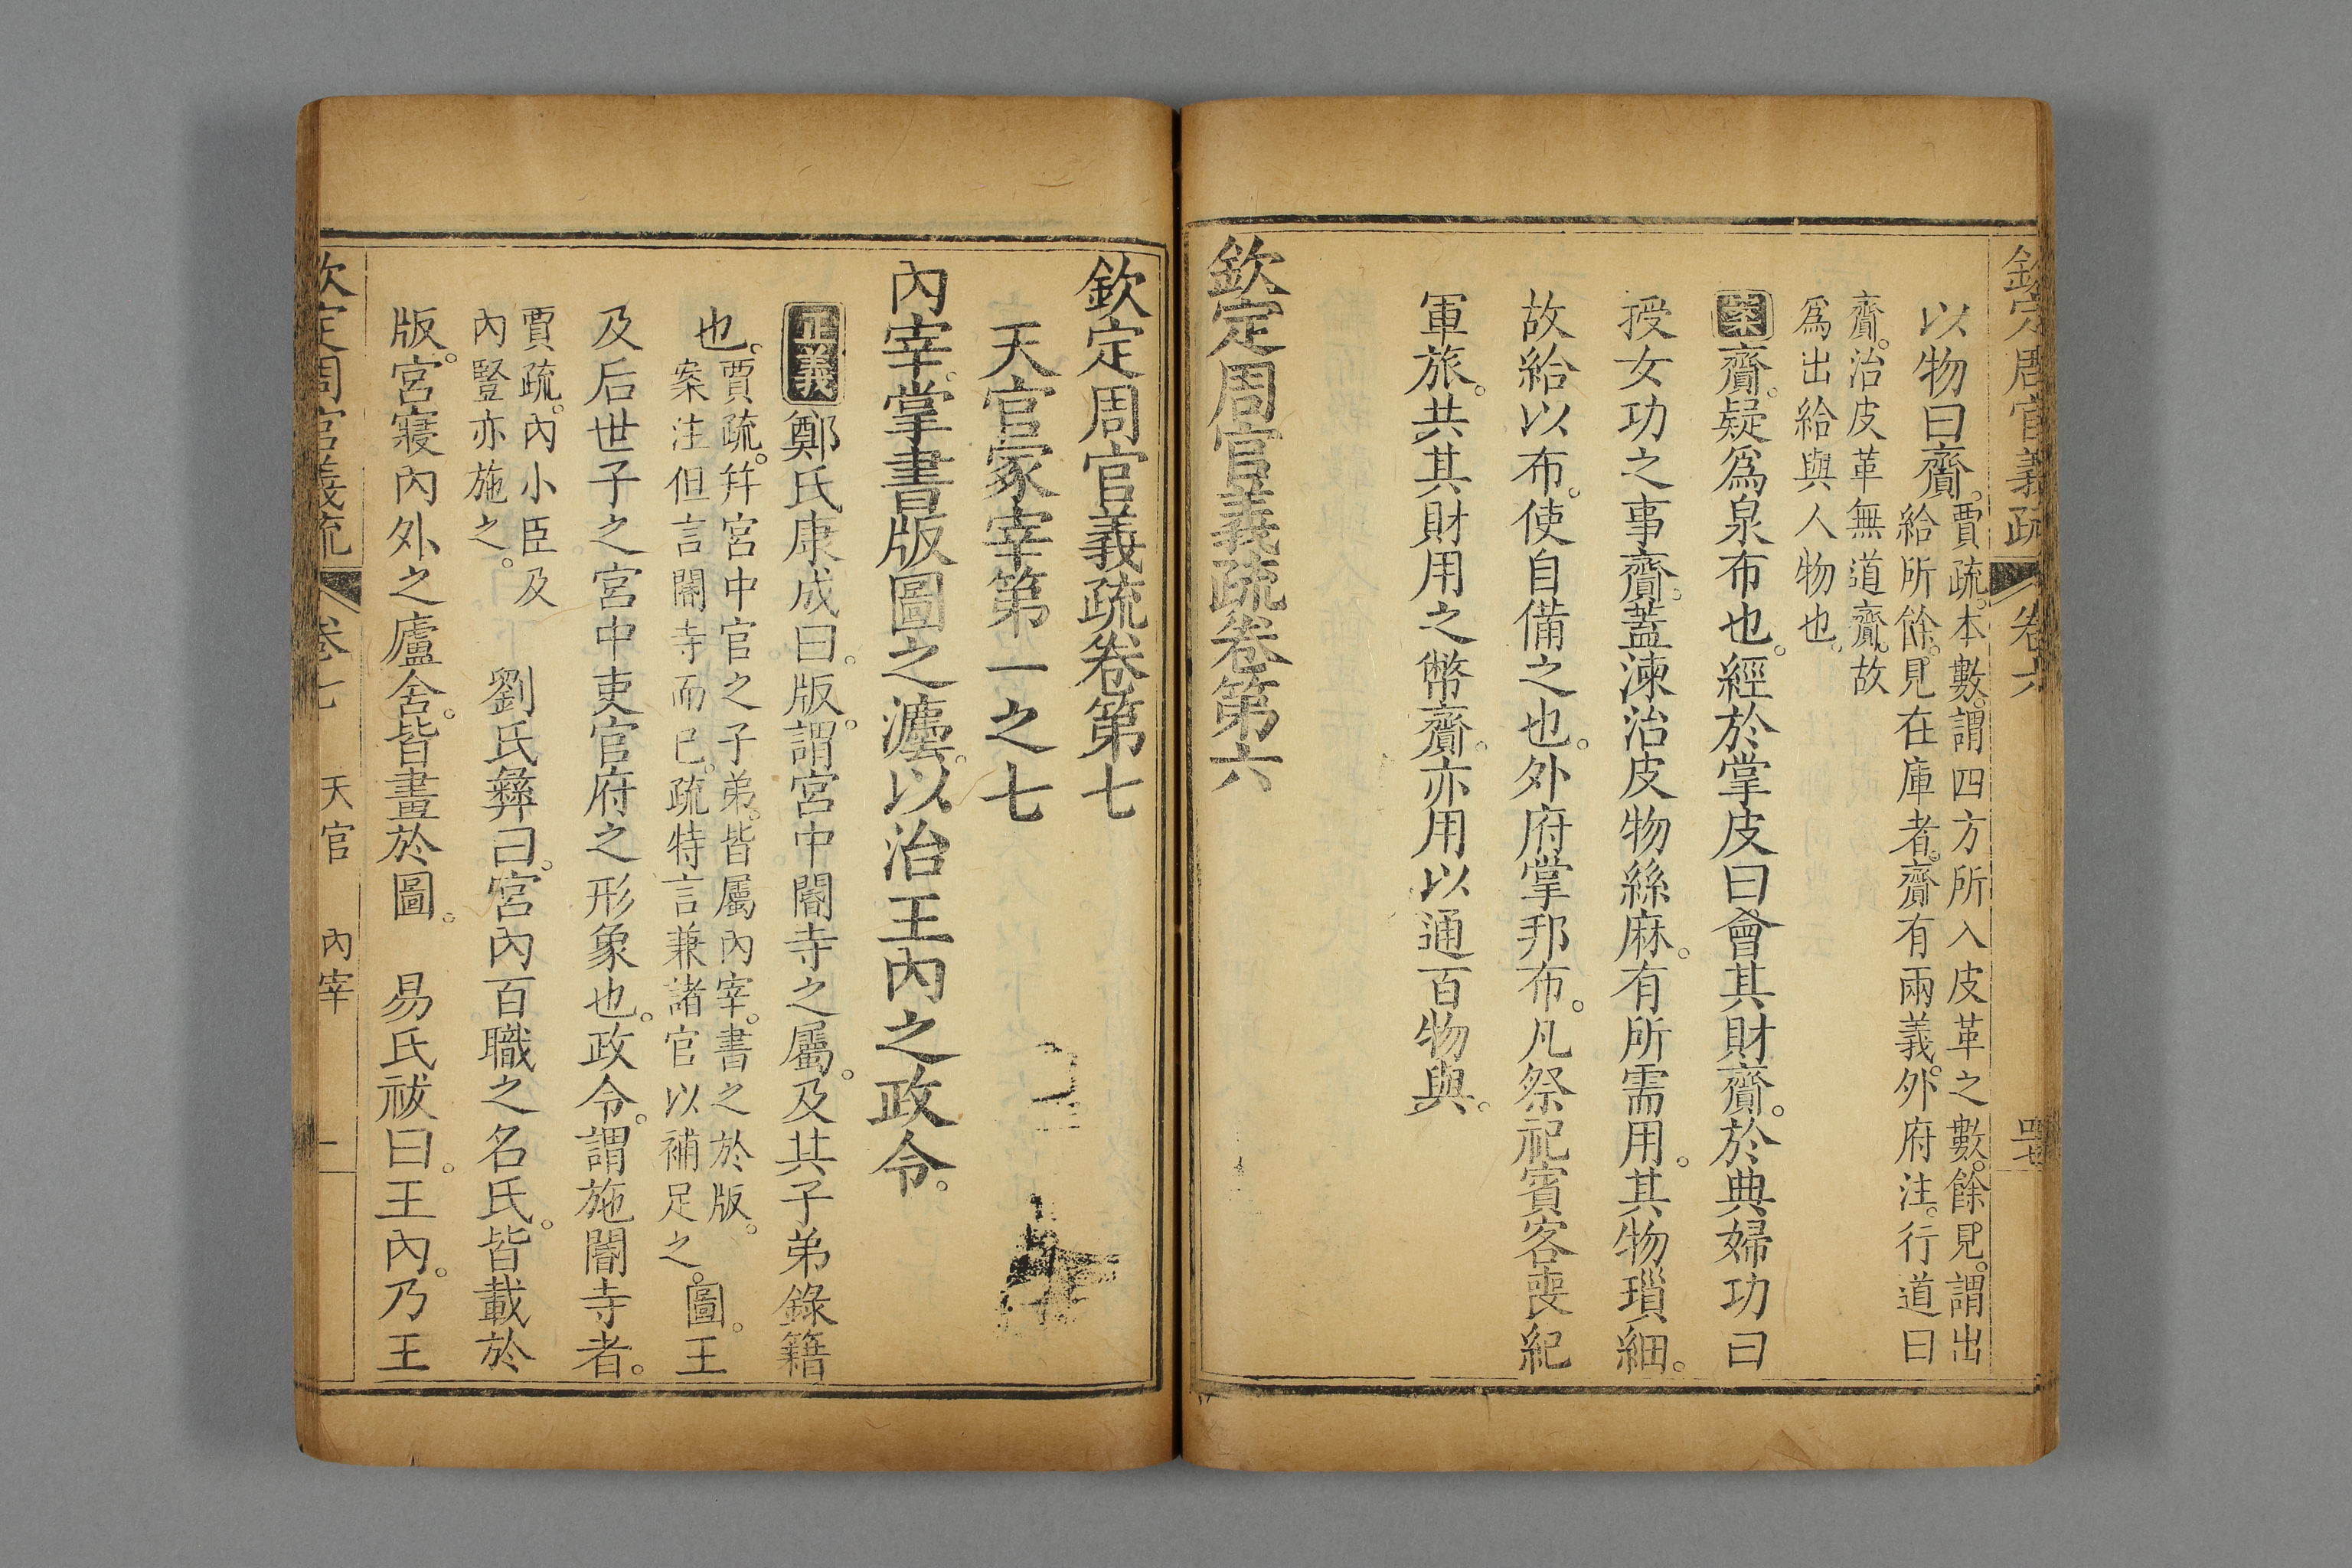 欽定周官義疏 卷六
以物曰齎。賈疏。本數。謂四方所入皮革之數。餘見。謂出
給所餘。見在庫者。齎有兩義。外府注。行道曰
齎。治皮革無道齎。故
爲出給與人物也。
案齎。疑爲泉布也。經於掌皮曰會其財齎。於典婦功曰
授女功之事齎。蓋湅治皮物絲麻。有所需用。其物瑣細。
故給以布。使自備之也。外府掌邦布。凡祭祀賓客喪紀
軍旅。共其財用之幣齎。亦用以通百物與。
欽定周官義疏卷第六
欽定周官義疏卷第七
天官冢宰第一之七
內宰。掌書版圖之灋。以治王內之政令。
正義鄭氏康成曰。版。謂宮中閽寺之屬。及其子弟錄籍
也。賈疏。幷宮中官之子弟。皆屬內宰。書之於版。
案注但言閽寺而已。疏特言兼諸官以補足之。圖。王
及后世子之宮中吏官府之形象也。政令。謂施閽寺者。
賈疏。內小臣及
內豎亦施之。
劉氏彝曰。宮內百職之名氏。皆載於
版。宮寢內外之廬舍。皆畫於圖。 易氏祓曰。王內。乃王
欽定周官義疏 卷七 天官 內宰 一